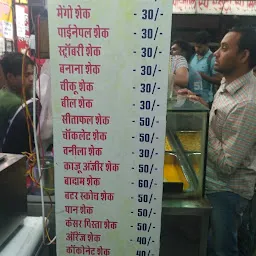 मेंगो शेक - 30/-
पाईनेपल शेक - 30/-
स्ट्रॉबरी शेक - 30/-
बनाना शेक - 30/-
चीकू शेक - 30/-
बील शेक - 30/-
सीताफल शेक - 50/-
चॉकलेट शेक - 50/-
वनीला शेक - 30/-
काजू अंजीर शेक - 50/-
बादाम शेक - 60/-
बटर स्कोच शेक - 50/-
पान शेक - 50/-
केसर पिस्ता शेक - 50/-
ऑरेंज शेक - 40/-
कोकोनेट शेक - 40/-